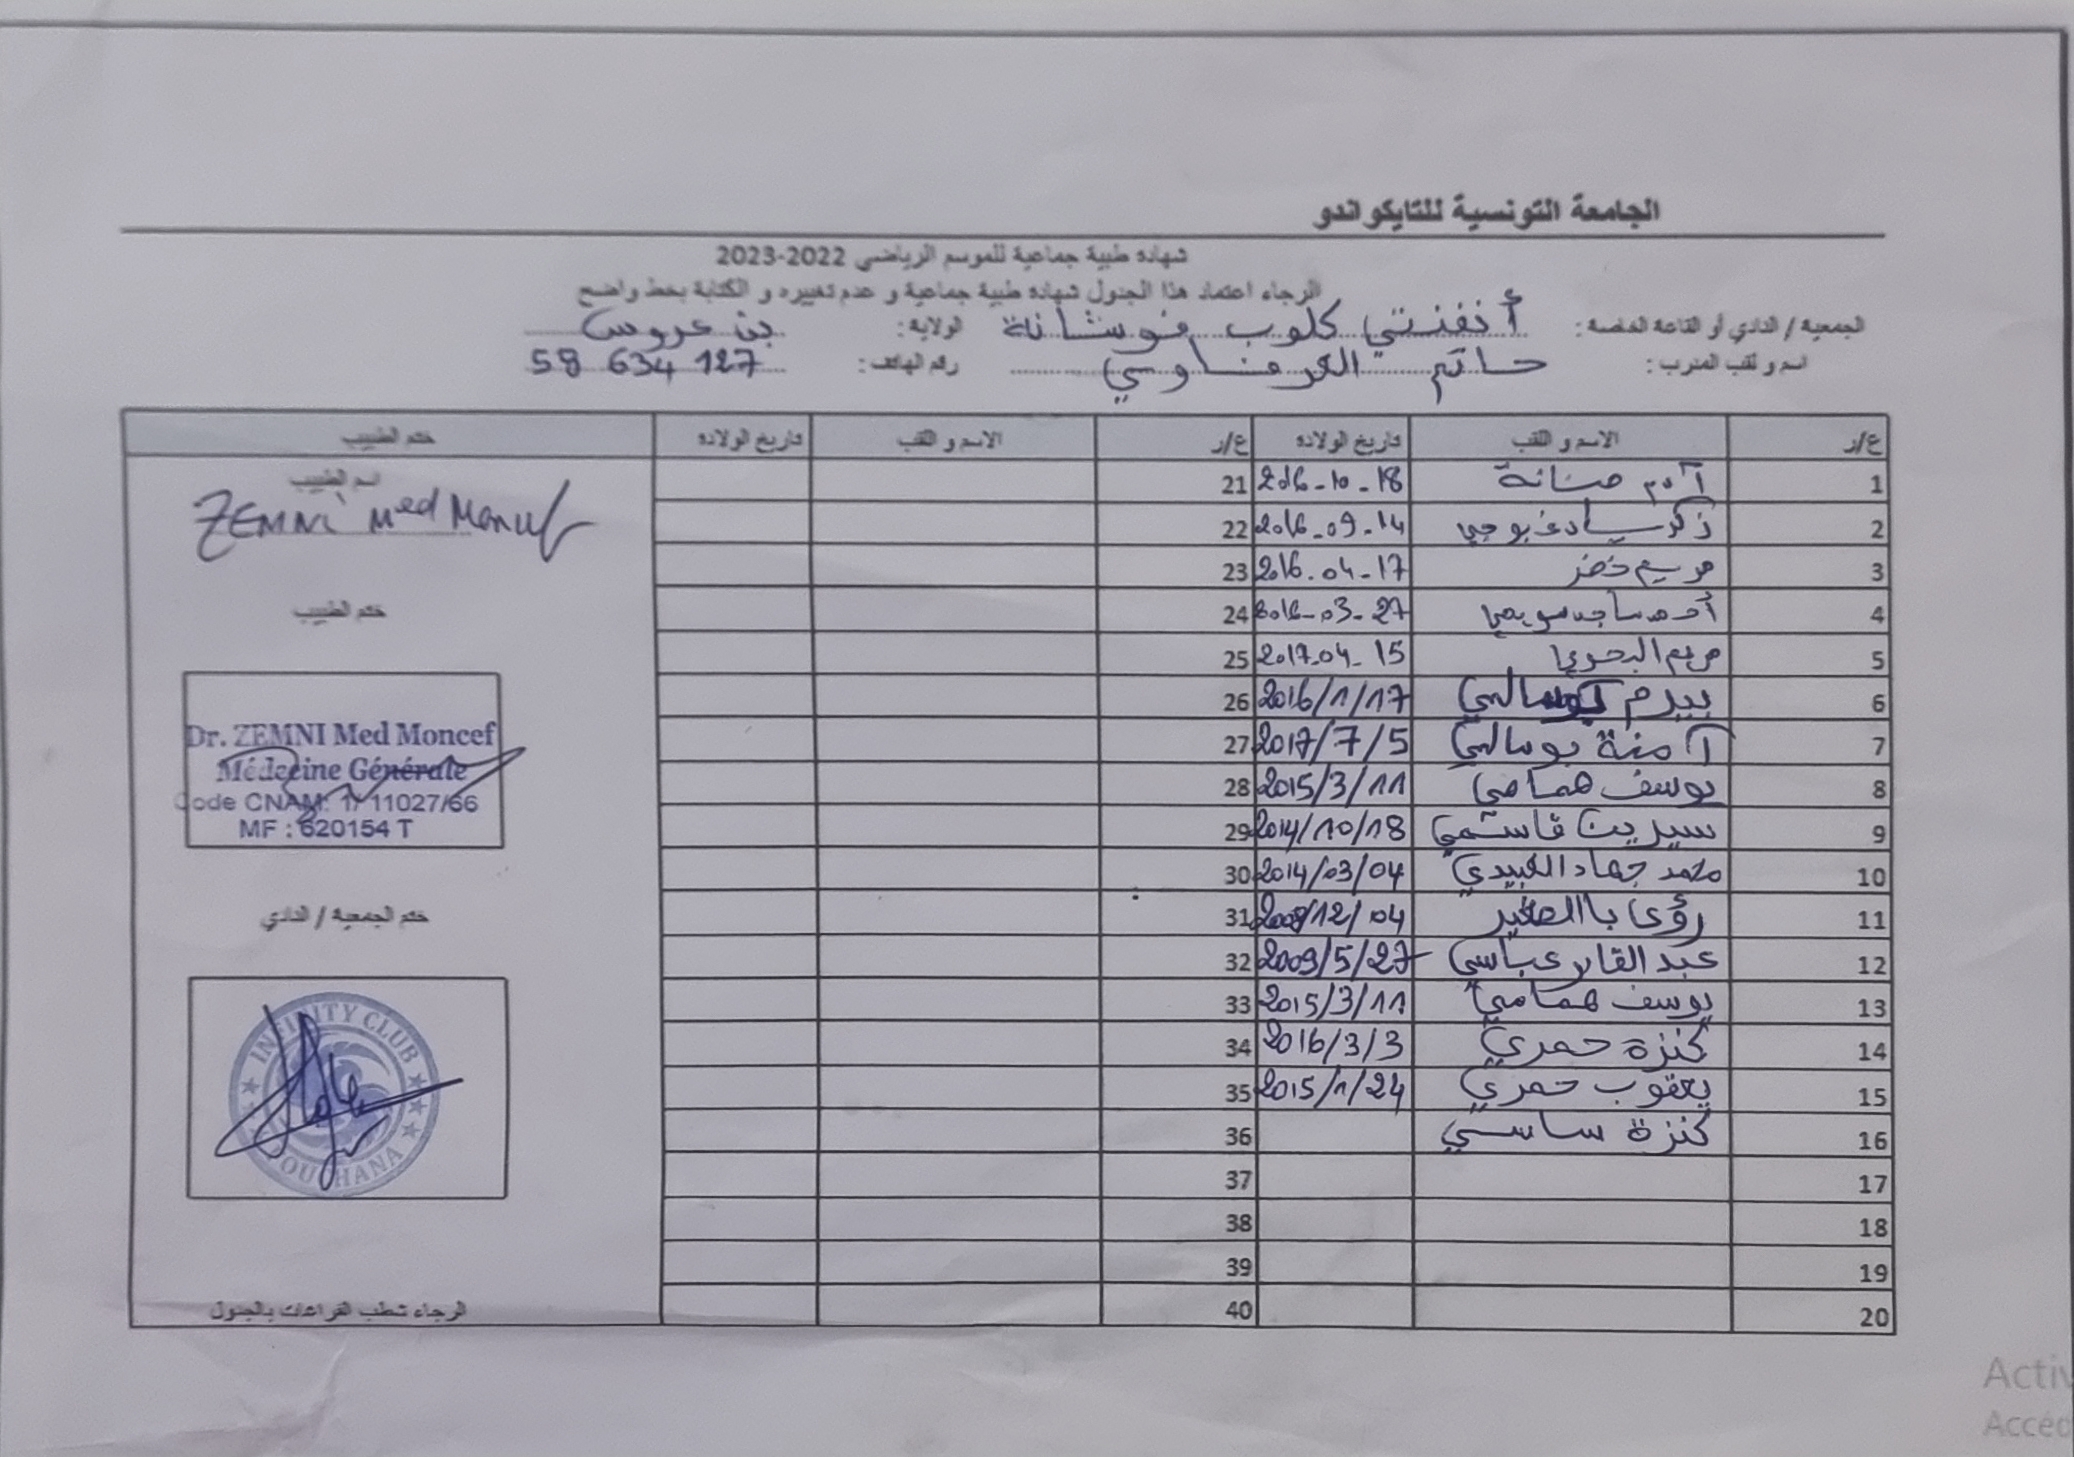 الجامعة التونسية للتايكواندو
شهادة طبية جماعية للموسم الرياضي 2022-2023
الرجاء اعتماد هذا الجدول شهادة طبية جماعية و عدم تغييره و الكتابة بخط واضح
الجمعية / النادي أو القاعة الخاصة : أنفنتي كلوب فوشانة الولاية : بن عروس
اسم و لقب المدرب : حاتم العرفاوي رقم الهاتف : 58 634 127
ع/ر الاسم و اللقب تاريخ الولادة ع/ر الاسم و اللقب تاريخ الولادة ختم الطبيب
1 آدم 2016-10-18 21
2 زكرياء 2016-09-14 22
3 مريم خضر 2016-04-17 23
4 أحمد ساجد 2016-03-27 24
5 مريم البحري 2017-04-15 25
6 بيرم بوسالمي 2016/1/17 26
7 آمنة بوسالمي 2017/7/5 27
8 يوسف همامي 2015/3/11 28
9 سيرين قاسمي 2014/10/18 29
10 محمد جهاد العبيدي 2014/03/04 30
11 رؤى بالصغير 2008/12/04 31
12 عبد القادر عباسي 2009/5/27 32
13 يوسف همامي 2015/3/11 33
14 كنزة حمدي 2016/3/3 34
15 يعقوب حمدي 2015/1/24 35
16 كنزة ساسي 36
17 37
18 38
19 39
20 40
اسم الطبيب
ZEMNI Med Moncef
ختم الطبيب
Dr. ZEMNI Med Moncef
Médecine Générale
Code CNAM: 1/ 11027/66
MF : 620154 T
ختم الجمعية / النادي
INFINITY CLUB
FOUCHANA
الرجاء شطب الفراغات بالجدول
Activ
Accéd